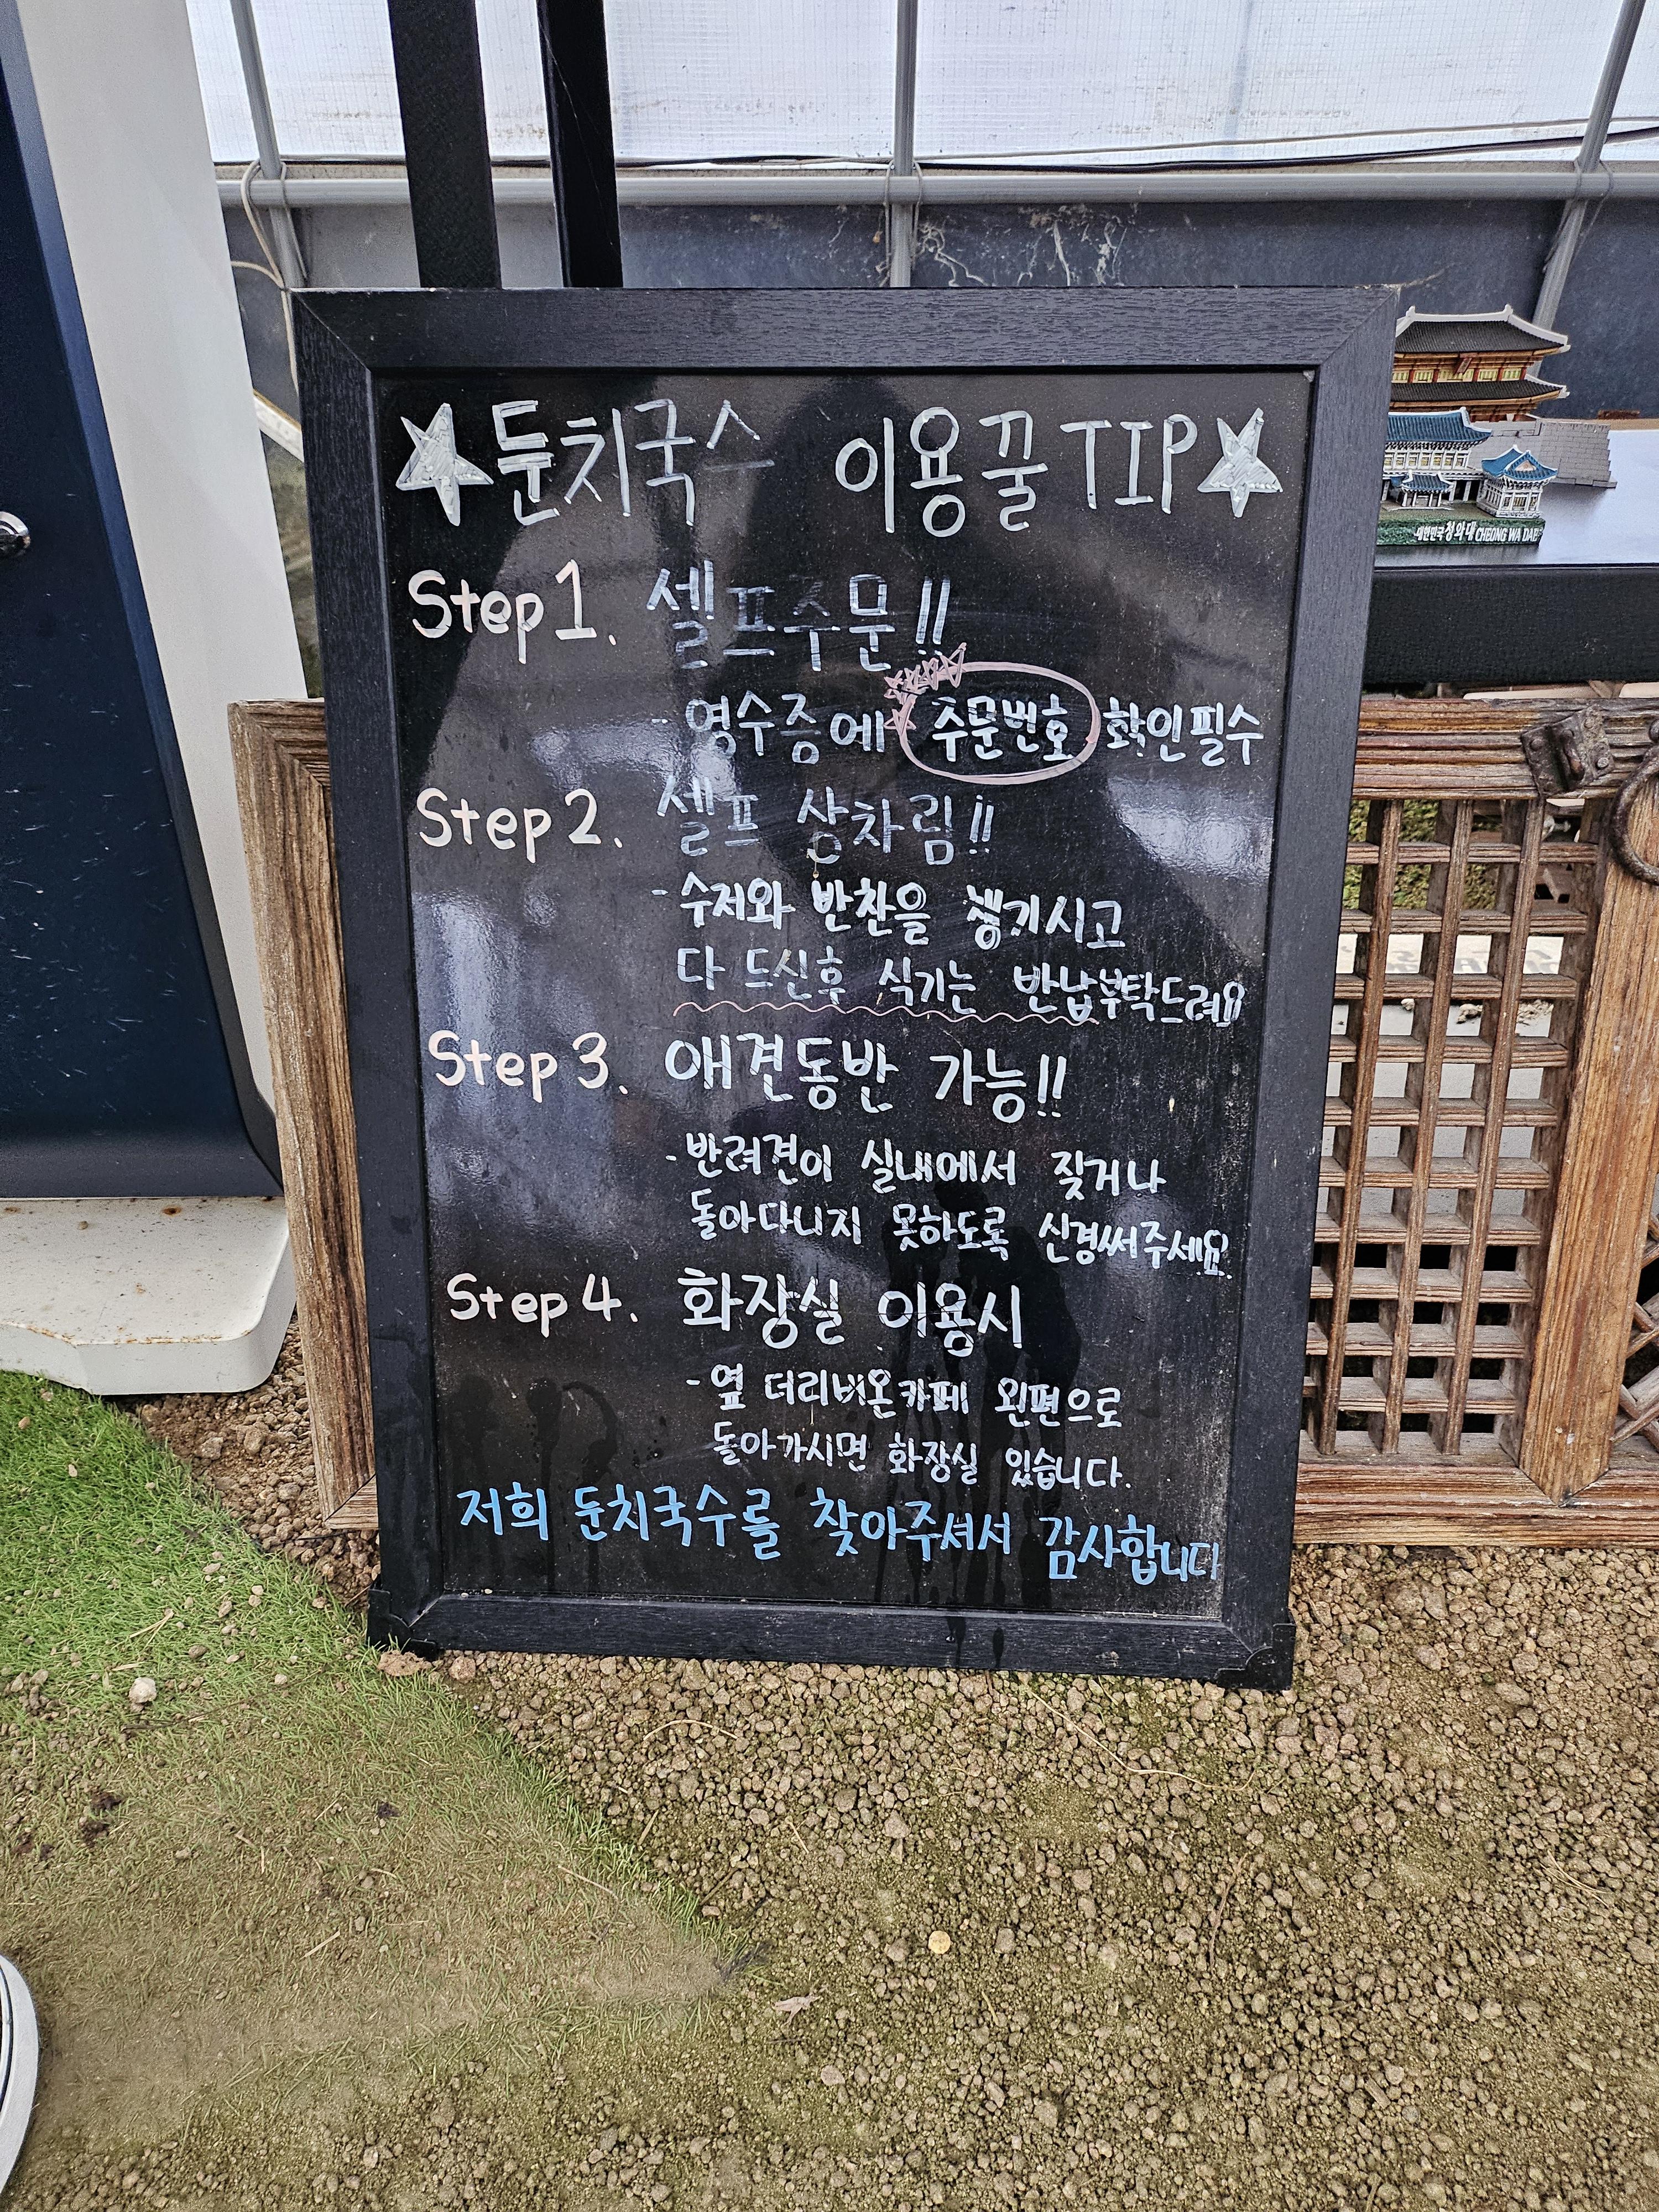 ☆둔치국수 이용꿀TIP☆
Step 1. 셀프주문!!
- 영수증에 주문번호 확인필수
Step 2. 셀프 상차림!!
- 수저와 반찬을 챙기시고
다 드신후 식기는 반납부탁드려요
Step 3. 애견동반 가능!!
- 반려견이 실내에서 짖거나
돌아다니지 못하도록 신경써주세요.
Step 4. 화장실 이용시
- 옆 더리버온카페 왼편으로
돌아가시면 화장실 있습니다.
저희 둔치국수를 찾아주셔서 감사합니다
대한민국 청와대 CHEONG WA DAE